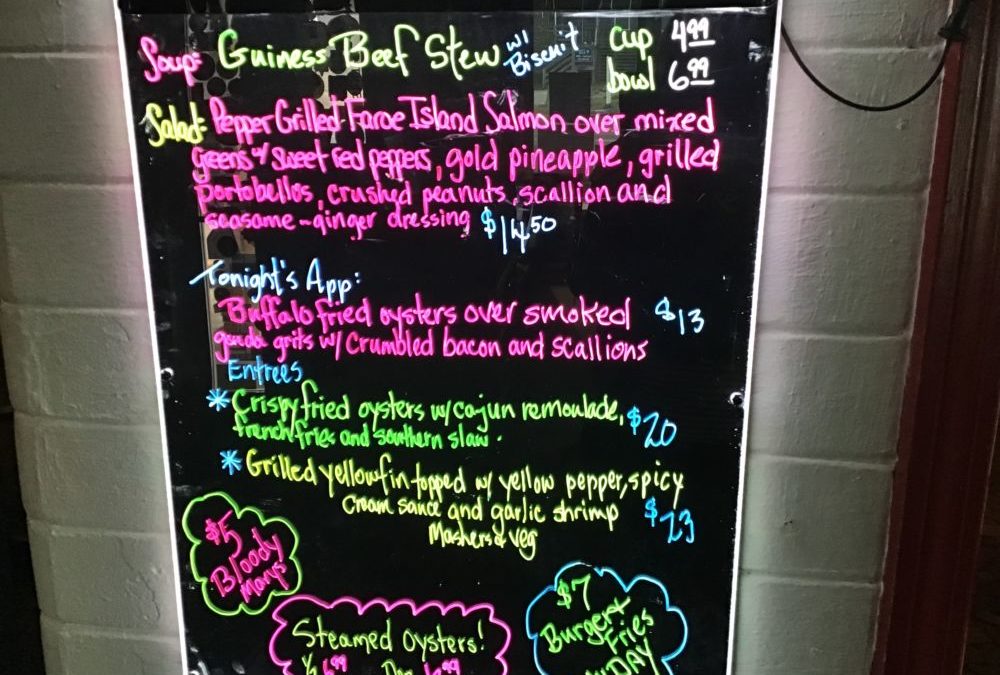 Soup: Guiness Beef Stew w/ Biscuit cup 4.99
bowl 6.99
Salad: Pepper Grilled Faroe Island Salmon over mixed
greens w/ sweet red peppers, gold pineapple, grilled
portobellos, crushed peanuts, scallion and
seasame-ginger dressing $14.50
Tonight's App:
Buffalo fried oysters over smoked $13
gouda grits w/ crumbled bacon and scallions
Entrees
* Crispy fried oysters w/ cajun remoulade, $20
french fries and southern slaw.
* Grilled yellowfin topped w/ yellow pepper, spicy
cream sauce and garlic shrimp $23
Mashers & veg
$5
Bloody
Marys
Steamed Oysters!
$7
Burger+
Fries